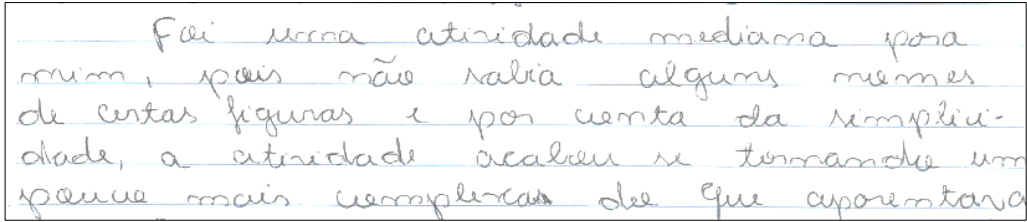 Foi uma atividade mediana para
mim, pois não sabia alguns nomes
de certas figuras e por conta da simplici-
dade, a atividade acabou se tornando um
pouco mais complicas do que aparentava